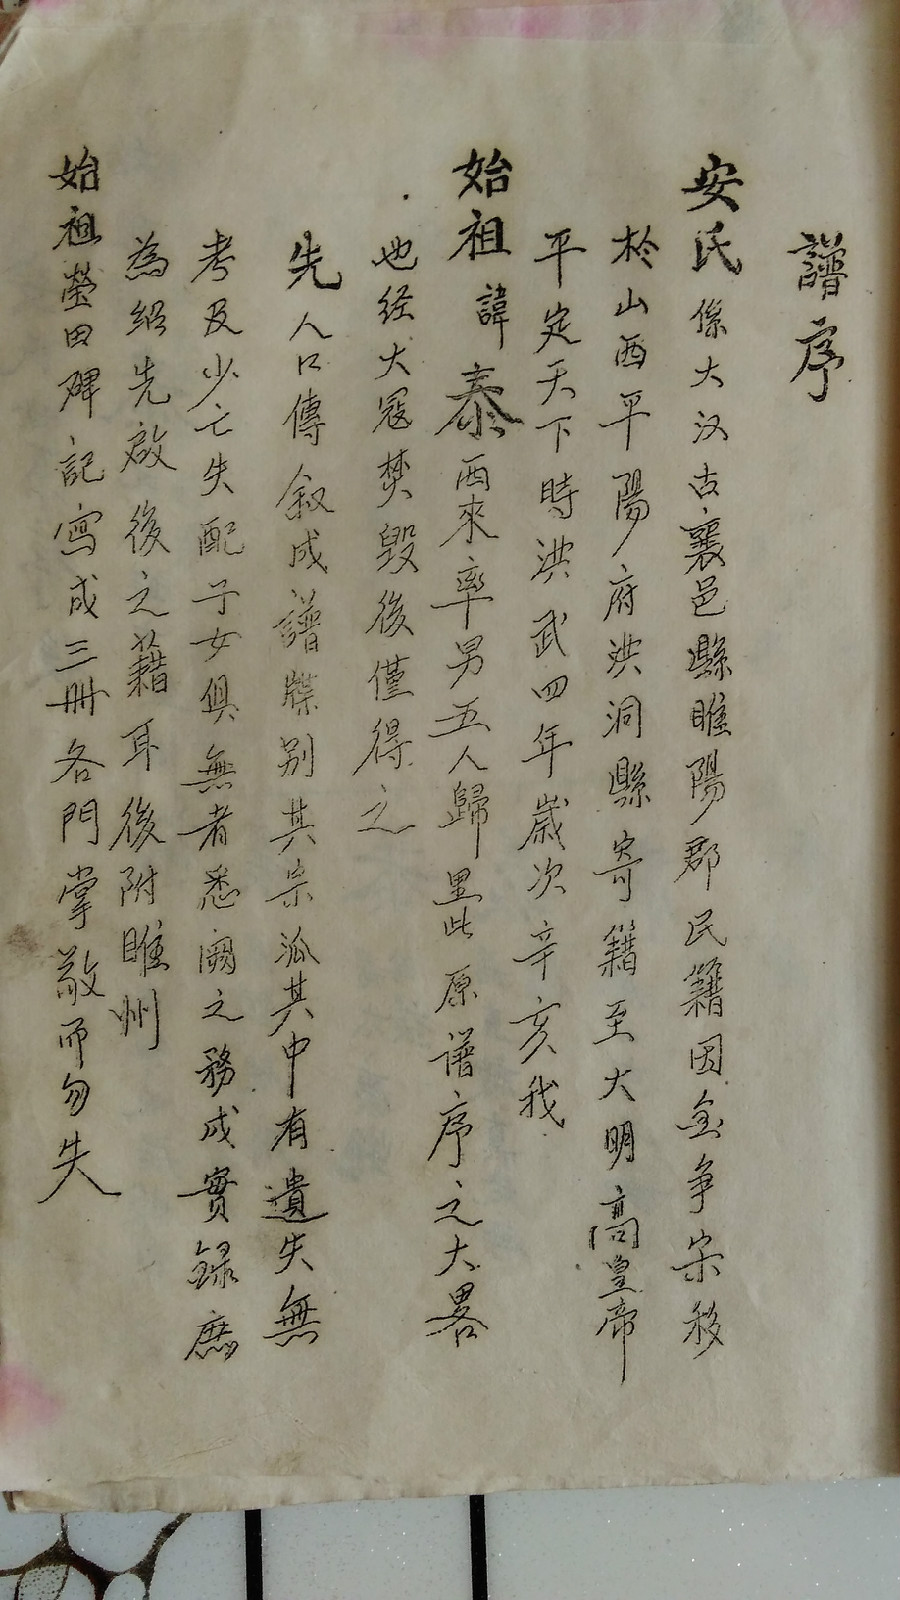 譜序
安氏係大汉古襄邑縣睢陽郡民籍因金争宋移
於山西平陽府洪洞縣寄籍至大明高皇帝
平定天下時洪武四年歲次辛亥我
始祖諱泰西來率男五人歸里此原譜序之大畧
也经大冦焚毀後僅得之
先人口傳叙成譜牒别其宗派其中有遺失無
考及少亡失配子女俱無者悉阙之務成實録庶
為绍先啟後之藉耳後附睢州
始祖塋田碑記寫成三冊各門掌敬而勿失